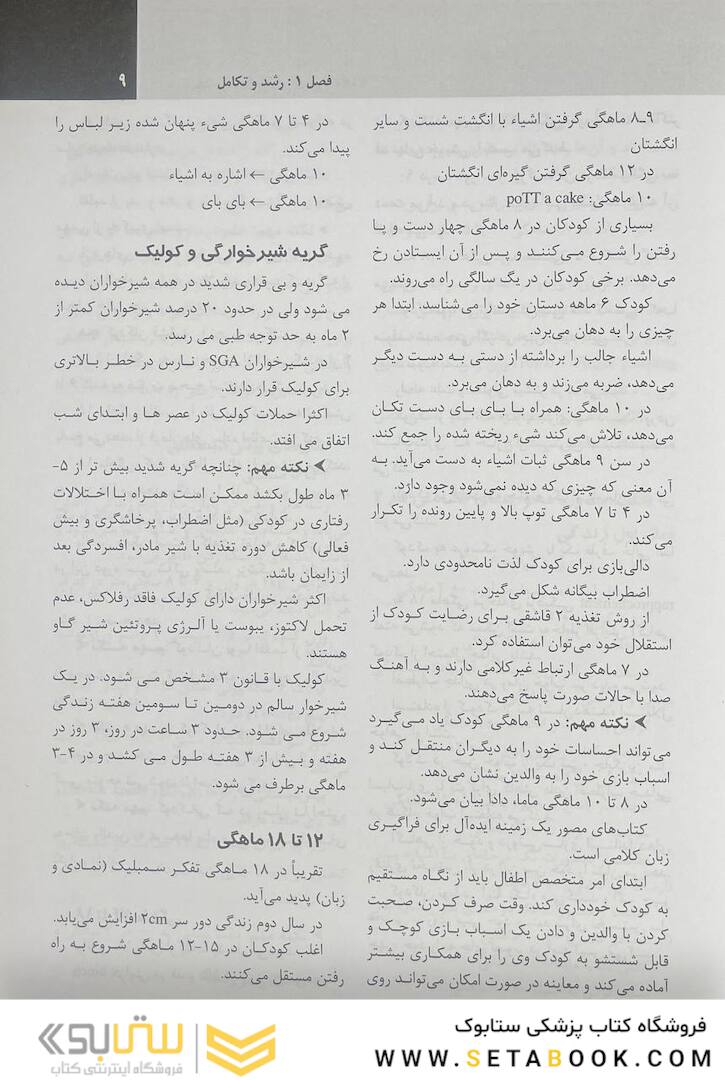 فصل ۱ : رشد و تکامل
۹
۹ـ۸ ماهگی گرفتن اشیاء با انگشت شست و سایر
انگشتان
در ۱۲ ماهگی گرفتن گیره‌ای انگشتان
۱۰ ماهگی: poTT a cake
بسیاری از کودکان در ۸ ماهگی چهار دست و پا
رفتن را شروع می‌کنند و پس از آن ایستادن رخ
می‌دهد. برخی کودکان در یک سالگی راه می‌روند.
کودک ۶ ماهه دستان خود را می‌شناسد. ابتدا هر
چیزی را به دهان می‌برد.
اشیاء جالب را برداشته از دستی به دست دیگر
می‌دهد، ضربه می‌زند و به دهان می‌برد.
در ۱۰ ماهگی: همراه با بای بای دست تکان
می‌دهد، تلاش می‌کند شیء ریخته شده را جمع کند.
در سن ۹ ماهگی ثبات اشیاء به دست می‌آید. به
آن معنی که چیزی که دیده نمی‌شود وجود دارد.
در ۴ تا ۷ ماهگی توپ بالا و پایین رونده را تکرار
می‌کند.
دالی‌بازی برای کودک لذت نامحدودی دارد.
اضطراب بیگانه شکل می‌گیرد.
از روش تغذیه ۲ قاشقی برای رضایت کودک از
استقلال خود می‌توان استفاده کرد.
در ۷ ماهگی ارتباط غیرکلامی دارند و به آهنگ
صدا با حالات صورت پاسخ می‌دهند.
➤ نکته مهم: در ۹ ماهگی کودک یاد می‌گیرد
می‌تواند احساسات خود را به دیگران منتقل کند و
اسباب بازی خود را به والدین نشان می‌دهد.
در ۸ تا ۱۰ ماهگی ماما، دادا بیان می‌شود.
کتاب‌های مصور یک زمینه ایده‌آل برای فراگیری
زبان کلامی است.
ابتدای امر متخصص اطفال باید از نگاه مستقیم
به کودک خودداری کند. وقت صرف کردن، صحبت
کردن با والدین و دادن یک اسباب بازی کوچک و
قابل شستشو به کودک وی را برای همکاری بیشتر
آماده می‌کند و معاینه در صورت امکان می‌تواند روی
در ۴ تا ۷ ماهگی شیء پنهان شده زیر لباس را
پیدا می‌کند.
۱۰ ماهگی ← اشاره به اشیاء
۱۰ ماهگی ← بای بای
گریه شیرخوارگی و کولیک
گریه و بی قراری شدید در همه شیرخواران دیده
می شود ولی در حدود ۲۰ درصد شیرخواران کمتر از
۲ ماه به حد توجه طبی می رسد.
در شیرخواران SGA و نارس در خطر بالاتری
برای کولیک قرار دارند.
اکثرا حملات کولیک در عصر ها و ابتدای شب
اتفاق می افتد.
➤ نکته مهم: چنانچه گریه شدید بیش تر از ۵-
۳ ماه طول بکشد ممکن است همراه با اختلالات
رفتاری در کودکی (مثل اضطراب، پرخاشگری و بیش
فعالی) کاهش دوره تغذیه با شیر مادر، افسردگی بعد
از زایمان باشد.
اکثر شیرخواران دارای کولیک فاقد رفلاکس، عدم
تحمل لاکتوز، یبوست یا آلرژی پروتئین شیر گاو
هستند.
کولیک با قانون ۳ مشخص می شود. در یک
شیرخوار سالم در دومین تا سومین هفته زندگی
شروع می شود. حدود ۳ ساعت در روز، ۳ روز در
هفته و بیش از ۳ هفته طول می کشد و در ۴-۳
ماهگی برطرف می شود.
۱۲ تا ۱۸ ماهگی
تقریباً در ۱۸ ماهگی تفکر سمبلیک (نمادی و
زبان) پدید می‌آید.
در سال دوم زندگی دور سر ۲cm افزایش می‌یابد.
اغلب کودکان در ۱۵-۱۲ ماهگی شروع به راه
رفتن مستقل می‌کنند.
فروشگاه کتاب پزشکی ستابوک
WWW.SETABOOK.COM
ستابوک
فروشگاه اینترنتی کتاب